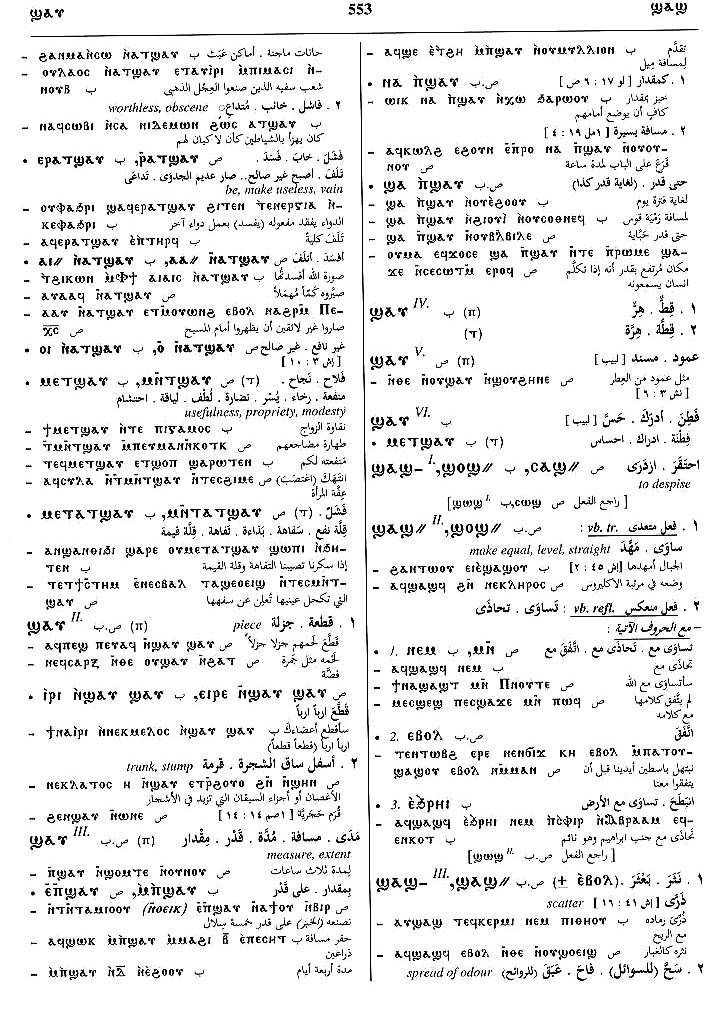 ϣⲁⲩ 553 ϣⲁϣ
– ϩⲁⲛⲙⲁⲛⲥⲱ ⲛ̀ⲁⲧϣⲁⲩ ب حانات ماجنة . أماكن عَبَث
– ⲟⲩⲗⲁⲟⲥ ⲛ̀ⲁⲧϣⲁⲩ ⲉⲧⲁⲩⲓ̀ⲣⲓ ⲙ̀ⲡⲓⲙⲁⲥⲓ ⲛ̀-
ⲛⲟⲩⲃ ب شعب سفيه الذين صنعوا العِجل الذهبي
٢ . فاشل . خائب . مُتداعٍ worthless, obscene
– ⲛⲁϥⲥⲱⲃⲓ ⲛ̀ⲥⲁ ⲛⲓⲇⲉⲙⲱⲛ ϩⲱⲥ ⲁⲧϣⲁⲩ ب
كان يهزأ بالشياطين كأن لا كيان لهم
• ⲉⲣⲁⲧϣⲁⲩ ب ,ⲣ̄ⲁⲧϣⲁⲩ ص فَشَلَ . خابَ . فَسَدَ .
تَلَفَ . أصبح غير صالح.. صار عديم الجدوَى . تَداعَى
be, make useless, vain
– ⲟⲩⲫⲁϧⲣⲓ ϣⲁϥⲉⲣⲁⲧϣⲁⲩ ϩⲓⲧⲉⲛ ⲧⲉⲛⲉⲣⲅⲓⲁ ⲛ̀-
ⲕⲉⲫⲁϧⲣⲓ ب الدواء يفقد مفعوله (يفسد) بعمل دواء آخر
– ⲁϥⲉⲣⲁⲧϣⲁⲩ ⲉ̀ⲡⲧⲏⲣϥ ب تَلَفَ كليةً
• ⲁⲓ⫽ ⲛ̀ⲁⲧϣⲁⲩ ب ,ⲁⲁ⫽ ⲛ̀ⲁⲧϣⲁⲩ ص أفسَدَ . أتلَفَ
– ϯϩⲓⲕⲱⲛ ⲙ̀ⲫϯ ⲁⲓⲁⲓⲥ ⲛ̀ⲁⲧϣⲁⲩ ب صورة الله أفسدتُها
– ⲁⲩⲁⲁϥ ⲛ̀ⲁⲧϣⲁⲩ ص صيَّروه كمًّا مُهمَلاً
– ⲁⲁⲩ ⲛ̀ⲁⲧϣⲁⲩ ⲉⲧⲙ̀ⲟⲩⲱⲛϩ ⲉⲃⲟⲗ ⲛⲁϩⲣⲙ̄ ⲡⲉ-
ⲭ̄ⲥ̄ ص صاروا غير لائقين أن يظهروا أمام المسيح
• ⲟⲓ ⲛ̀ⲁⲧϣⲁⲩ ب ,ⲟ̀ ⲛ̀ⲁⲧϣⲁⲩ ص غير نافع . غير صالح
[إش ٣ : ١٠]
• ⲙⲉⲧϣⲁⲩ ب ,ⲙⲛ̄ⲧϣⲁⲩ ص (ⲧ) فَلاح . نَجاح .
منفعة . رخاء . يُسْر . نَضارة . لُطْف . لياقة . احتشام
usefulness, propriety, modesty
– ϯⲙⲉⲧϣⲁⲩ ⲛ̀ⲧⲉ ⲡⲓⲅⲁⲙⲟⲥ ب نقاوة الزواج
– ⲧⲙⲛ̄ⲧϣⲁⲩ ⲙ̀ⲡⲉⲩⲙⲁⲛ̄ⲛⲕⲟⲧⲕ ص طهارة مضاجعهم
– ⲧⲉϥⲙⲉⲧϣⲁⲩ ⲉⲧϣⲟⲡ ϣⲁⲣⲱⲧⲉⲛ ب منفعته لكم
– ⲁϥⲥⲩⲗⲁ ⲛ̄ⲧⲙⲛ̄ⲧϣⲁⲩ ⲛ̄ⲧⲉⲥϩⲓⲙⲉ ص انتَهَكَ (اغتصَبَ)
عِفَّة المرأة
• ⲙⲉⲧⲁⲧϣⲁⲩ ب ,ⲙⲛ̄ⲧⲁⲧϣⲁⲩ ص (ⲧ) فَشَل .
قِلَّة نفع . سَفاهة . بَذاءة . تفاهة . قِلَّة قيمة
– ⲁⲛϣⲁⲛⲑⲓϧⲓ ϣⲁⲣⲉ ⲟⲩⲙⲉⲧⲁⲧϣⲁⲩ ϣⲱⲡⲓ ⲛ̀ϧⲏ-
ⲧⲉⲛ ب إذا سكرنا تصيبنا التفاهة وقلة القيمة
– ⲧⲉⲧϯⲥⲧⲏⲙ ⲉ̀ⲛⲉⲥⲃⲁⲗ ⲧⲁϣⲉⲟⲉⲓϣ ⲛ̀ⲧⲉⲥⲙⲛ̄ⲧ-
ϣⲁⲩ ص التي تكحل عينيها تُعلِن عن سفهها
ϣⲁⲩ II. (ⲡ) ص.ب ١ . قطعة . جزلة piece
– ⲁϥⲡⲉϣ ⲡⲉⲩⲁϥ ⲛ̀ϣⲁⲩ ϣⲁⲩ ص قَطَّعَ لحمهم جزلا جزلاً
– ⲛⲉϥⲥⲁⲣⲝ ⲛ̀ⲑⲉ ⲟⲩϣⲁⲩ ⲛ̀ϩⲁⲧ ص لحمه مثل نُقرة
فِضَّة
• ⲓ̀ⲣⲓ ⲛ̀ϣⲁⲩ ϣⲁⲩ ب ,ⲉⲓⲣⲉ ⲛ̀ϣⲁⲩ ϣⲁⲩ ص
قَطَّعَ ارباً ارباً
– ϯⲛⲁⲓ̀ⲣⲓ ⲛ̀ⲛⲉⲕⲙⲉⲗⲟⲥ ⲛ̀ϣⲁⲩ ϣⲁⲩ ب سأقطع أعضاءك
ارباً ارباً (قطعاً قطعاً)
٢ . أسفل ساق الشجرة . قرمة trunk, stump
– ⲛⲉⲕⲗⲁⲧⲟⲥ ⲏ ⲛ̀ϣⲁⲩ ⲉⲧⲣ̄ϩⲟⲩⲟ ϩⲛ̄ ⲛ̄ϣⲏⲛ ص
الأغصان أو أجزاء السيقان التي تزيد في الأشجار
– ϩⲉⲛϣⲁⲩ ⲛ̀ⲱⲛⲉ ص قُرَم حَجَريَّة [١صم ١٤ : ١٤]
ϣⲁⲩ III. (ⲡ) ص.ب مَدَى . مسافة . مُدَّة . قَدْر . مِقْدار
measure, extent
– ⲡ̀ϣⲁⲩ ⲛ̀ϣⲟⲙⲧⲉ ⲛ̀ⲟⲩⲛⲟⲩ ص لمدة ثلاث ساعات
• ⲉ̀ⲡ̄ϣⲁⲩ ص ,ⲙ̀ⲡ̀ϣⲁⲩ ب بِمقدار . على قَدْر
– ⲛ̀ⲧⲛ̀ⲧⲁⲙⲓⲟⲟⲩ (ⲛ̄ⲟⲉⲓⲕ) ⲉ̄ⲡ̄ϣⲁⲩ ⲛ̀ϥⲧⲟⲩ ⲛ̄ⲃⲓⲣ ص
نصنعه (الخبز) على قدر خمسة سِلال
– ⲁϥϣⲱⲕ ⲙ̀ⲡ̀ϣⲁⲩ ⲙ̀ⲙⲁϩⲓ ⲃ̄ ⲉ̀ⲡⲉⲥⲏⲧ ب حفر مسافة
ذراعين
– ⲙ̀ⲡ̀ϣⲁⲩ ⲛ̀ⲇ̄ ⲛ̀ⲉ̀ϩⲟⲟⲩ ب مدة أربعة أيام
– ⲁϥϣⲉ ⲉ̀ⲧϩⲏ ⲙ̀ⲡ̀ϣⲁⲩ ⲛ̀ⲟⲩⲙⲩⲗⲗⲓⲟⲛ ب تقدَّم
لمسافة ميل
• ⲛⲁ ⲡ̀ϣⲁⲩ ص.ب ١ . كمقدار [لو ١٧ : ٦ ص]
– ⲱⲓⲕ ⲛⲁ ⲡ̀ϣⲁⲩ ⲛ̀ⲭⲱ ϧⲁⲣⲱⲟⲩ ب خبز بمقدار
كافٍ أن يوضع أمامهم
٢ . مسافة يسيرة [١مل ١٩ : ٤]
– ⲁϥⲕⲱⲗϩ ⲉϩⲟⲩⲛ ⲉ̄ⲡⲣⲟ ⲛⲁ ⲡ̄ϣⲁⲩ ⲛ̄ⲟⲩⲟⲩ-
ⲛⲟⲩ ص قَرَعَ على الباب لمدة ساعة
• ϣⲁ ⲡ̀ϣⲁⲩ ص.ب حتى قدر . (لغاية قدر كذا)
– ϣⲁ ⲡ̀ϣⲁⲩ ⲛ̀ⲟⲩⲉ̀ϩⲟⲟⲩ ب لغاية فترة يوم
– ϣⲁ ⲡ̀ϣⲁⲩ ⲛ̀ϩⲓⲟⲩⲓ̀ ⲛ̀ⲟⲩⲥⲟⲑⲛⲉϥ ب لمسافة رَمْيَة قوس
– ϣⲁ ⲡ̄ϣⲁⲩ ⲛ̄ⲟⲩⲃⲗ̄ⲃⲓⲗⲉ ص حتى قدر حَبَّاية
– ⲟⲩⲙⲁ ⲉϥϫⲟⲥⲉ ϣⲁ ⲡ̄ϣⲁⲩ ⲛ̄ⲧⲉ ⲡ̄ⲣⲱⲙⲉ ϣⲁ-
ϫⲉ ⲛ̄ⲥⲉⲥⲱⲧⲙ̄ ⲉⲣⲟϥ ص مكان مُرتفع بقدر أنه إذا تكلَّم
انسان يسمعونه
ϣⲁⲩ IV. ب (ⲡ) ١ . قِطٌّ . هِرٌّ
(ⲧ) ٢ . قِطَّة . هِرَّة
ϣⲁⲩ V. ص (ⲡ) عمود . مسند [ليب]
– ⲛ̄ⲑⲉ ⲛ̄ⲟⲩϣⲁⲩ ⲛ̄ϣⲟⲩϩⲏⲛⲉ ص مثل عمود من العِطر
[نش ٣ : ٦]
ϣⲁⲩ VI. ب فَطِنَ . أدرَكَ . حَسَّ [ليب]
• ⲙⲉⲧϣⲁⲩ ب (ⲧ) فِطْنَة . ادراك . احساس
ϣⲁϣ– I. ,ϣⲟϣ⫽ ب ,ⲥⲁϣ⫽ ص احتَقَرَ . ازدَرَى
to despise
[راجع الفعل ϣⲱϣ I. ص.ب ,ⲥⲱϣ]
ϣⲁϣ⫽ II. ,ϣⲟϣ⫽ ص.ب ١ . فعل متعدى .vb. tr :
ساوَى . مَهَّدَ make equal, level, straight
– ϩⲁⲛⲧⲱⲟⲩ ⲉⲓⲉ̀ϣⲁϣⲟⲩ ب الجبال أمهدها [إش ٤٥ : ٢]
– ⲁϥϣⲁϣϥ ϩⲛ̄ ⲛⲉⲕⲗⲏⲣⲟⲥ ص وضعه في مرتبة الاكليروس
٢ . فعل منعكس .vb. refl : تَساوَى . تحاذَى
– مع الحروف الآتية :
• 1. ⲛⲉⲙ ب ,ⲙⲛ̄ ص تساوَى مع . تَحاذَى مع . اتَّفَقَ مع
– ⲁϥϣⲁϣϥ ⲛⲉⲙ ب تحاذَى مع
– ϯⲛⲁϣⲁϣⲧ ⲙⲛ̄ ⲡⲛⲟⲩⲧⲉ ص سأتساوَى مع الله
– ⲙⲉⲥϣⲉϣ ⲡⲉⲥϣⲁϫⲉ ⲙⲛ̄ ⲡⲱϥ ص لم يتَّفِق كلامها
مع كلامه
• 2. ⲉⲃⲟⲗ ص.ب اتَّفَقَ
– ⲧⲉⲛⲧⲱⲃϩ ⲉⲣⲉ ⲛⲉⲛϭⲓϫ ⲕⲏ ⲉⲃⲟⲗ ⲙ̀ⲡⲁⲧⲟⲩ-
ϣⲁϣⲟⲩ ⲉⲃⲟⲗ ⲛⲉⲙⲁⲛ ب نبتهل باسطين أيدينا قبل أن
يتفقوا معنا
• 3. ⲉϧⲣⲏⲓ ب انبَطَحَ . تساوَى مع الأرض
– ⲁϥϣⲁϣϥ ⲉ̀ϧⲣⲏⲓ ⲛⲉⲙ ⲡ̀ⲥⲫⲓⲣ ⲛ̀ⲁ̀ⲃⲣⲁⲁⲙ ⲉϥ-
ⲉⲛⲕⲟⲧ ب تحاذَى مع جنب ابراهيم وهو نائم
[راجع الفعل ϣⲱϣ II. ص.ب]
ϣⲁϣ– III. ,ϣⲁϣ⫽ ص.ب (± ⲉ̀ⲃⲟⲗ) ١ . نَثَرَ . بَعْثَرَ .
ذَرَّى [إش ٤١ : ١٦] scatter
– ⲁⲩϣⲁϣ ⲧⲉϥⲕⲉⲣⲙⲓ ⲛⲉⲙ ⲡⲓⲑⲏⲟⲩ ب ذُرِّىَ رماده
مع الريح
– ⲁϥϣⲁϣϥ ⲉⲃⲟⲗ ⲛ̄ⲑⲉ ⲛ̄ⲟⲩϣⲟⲉⲓϣ ص نثره كالغبار
٢ . سَحَّ (للسوائل) . فاحَ . عَبَقَ (للروائح) spread of odour